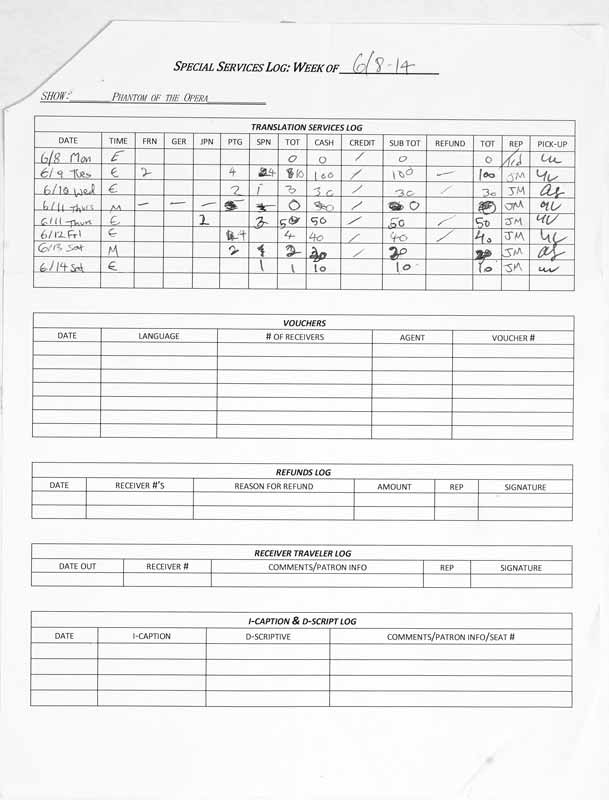 SPECIAL SERVICES LOG: WEEK OF 6/8-14
SHOW: PHANTOM OF THE OPERA
TRANSLATION SERVICES LOG
DATE TIME FRN GER JPN PTG SPN TOT CASH CREDIT SUB TOT REFUND TOT REP PICK-UP
6/8 Mon E 0 0 / 0 0
6/9 Tues E 2 4 4 10 100 / 100 — 100 JM
6/10 Wed E 2 1 3 30 / 30 / 30 JM
6/11 Thurs M — — — 0 / 0 JM
6/11 Thurs E 2 3 5 50 / 50 / 50 JM
6/12 Fri E 4 4 40 / 40 / 40 JM
6/13 Sat M 2 2 20 / 20 20 JM
6/14 Sat E 1 1 10 10 10 JM
VOUCHERS
DATE LANGUAGE # OF RECEIVERS AGENT VOUCHER #
REFUNDS LOG
DATE RECEIVER #'S REASON FOR REFUND AMOUNT REP SIGNATURE
RECEIVER TRAVELER LOG
DATE OUT RECEIVER # COMMENTS/PATRON INFO REP SIGNATURE
I-CAPTION & D-SCRIPT LOG
DATE I-CAPTION D-SCRIPTIVE COMMENTS/PATRON INFO/SEAT #